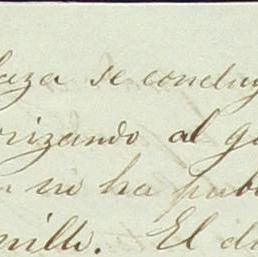 laza se concluy
orizando al go
n no ha pub
nillo. El d